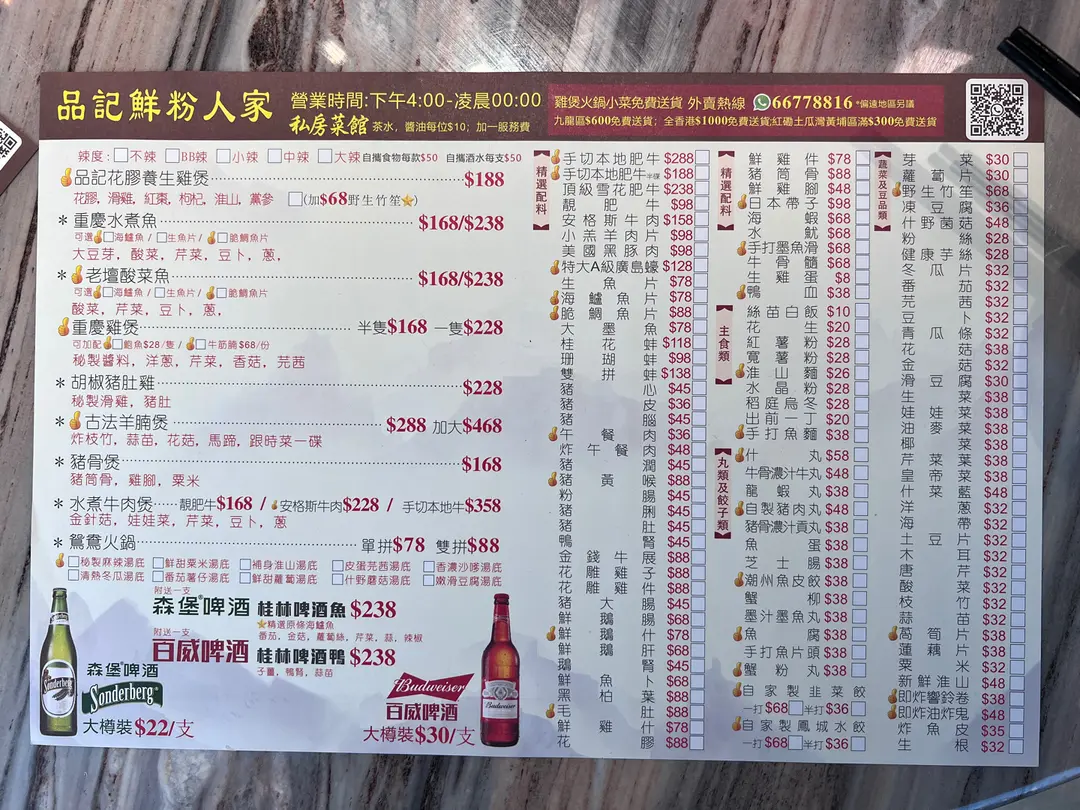 品記鮮粉人家
營業時間:下午4:00-凌晨00:00
私房菜館 茶水，醬油每位$10；加一服務費
雞煲火鍋小菜免費送貨 外賣熱線 66778816 *偏遠地區另議
九龍區$600免費送貨；全香港$1000免費送貨;紅磡土瓜灣黃埔區滿$300免費送貨
辣度：不辣 BB辣 小辣 中辣 大辣 自攜食物每款$50 自攜酒水每支$50
品記花膠養生雞煲 $188
花膠, 滑雞, 紅棗, 枸杞, 淮山, 黨參 (加$68野生竹笙)
* 重慶水煮魚 $168/$238
可選 海鱸魚 / 生魚片 / 脆鯛魚片
大豆芽, 酸菜, 芹菜, 豆卜, 蔥,
* 老壇酸菜魚 $168/$238
可選 海鱸魚 / 生魚片 / 脆鯛魚片
酸菜, 芹菜, 豆卜, 蔥,
重慶雞煲 半隻$168 一隻$228
可加配 鮑魚$28/隻 / 牛筋腩$68/份
秘製醬料, 洋蔥, 芹菜, 香菇, 芫茜
* 胡椒豬肚雞 $228
秘製滑雞, 豬肚
* 古法羊腩煲 $288 加大$468
炸枝竹, 蒜苗, 花菇, 馬蹄, 跟時菜一碟
* 豬骨煲 $168
豬筒骨, 雞腳, 粟米
* 水煮牛肉煲 靚肥牛$168 / 安格斯牛肉$228 / 手切本地牛$358
金針菇, 娃娃菜, 芹菜, 豆卜, 蔥
* 鴛鴦火鍋 單拼$78 雙拼$88
秘製麻辣湯底 鮮甜粟米湯底 補身淮山湯底 皮蛋芫茜湯底 香濃沙嗲湯底
清熱冬瓜湯底 番茄薯仔湯底 鮮甜蘿蔔湯底 什野蘑菇湯底 嫩滑豆腐湯底
附送一支
森堡啤酒 桂林啤酒魚$238
精選原條海鱸魚
番茄, 金菇, 蘿蔔絲, 芹菜, 蒜, 辣椒
附送一支
百威啤酒 桂林啤酒鴨$238
子薑, 鴨腎, 蒜苗
森堡啤酒
Sonderberg
大樽裝$22/支
Budweiser
百威啤酒
大樽裝$30/支
Sonderberg
Budweiser
精選配料
手切本地肥牛 $288
手切本地肥牛半碟 $188
頂級雪花肥牛 $238
靚肥牛 $98
安格斯牛肉 $158
小羔羊肉片 $98
美國黑豚肉 $98
特大A級廣島蠔 $128
生魚片 $78
海鱸魚片 $78
脆鯛魚片 $88
大墨魚 $78
桂花蚌 $118
珊瑚蚌 $98
雙拼蚌 $138
豬心 $45
豬皮 $36
豬腦 $45
午餐肉 $36
炸午餐肉 $48
豬潤 $45
豬黃喉 $88
粉腸 $45
豬脷 $45
豬肚 $45
鴨腎 $45
金錢牛展 $88
花雕雞子 $88
花雕雞件 $88
豬大腸 $45
鮮鵝腸 $68
鮮鵝什 $78
鮮鵝肝 $68
鵝腎 $45
鮮魚卜 $68
黑柏葉 $88
毛肚 $88
鮮雞什 $78
花膠 $88
精選配料
鮮雞件 $78
豬筒骨 $88
鮮雞腳 $48
日本帶子 $98
海蝦 $68
水魷 $68
手打墨魚滑 $68
牛骨髓 $68
生雞蛋 $8
鴨血 $38
主食類
絲苗白飯 $10
花生 $20
紅薯粉 $28
寬薯粉 $28
淮山麵 $26
水晶粉 $28
稻庭烏冬 $28
出前一丁 $20
手打魚麵 $38
丸類及餃子類
什丸 $58
牛骨濃汁牛丸 $48
龍蝦丸 $38
自製豬肉丸 $48
豬骨濃汁貢丸 $38
魚蛋 $38
芝士腸 $38
潮州魚皮餃 $38
蟹柳 $38
墨汁墨魚丸 $38
魚腐 $38
手打魚片頭 $38
蟹粉丸 $38
自家製韭菜餃
一打$68 半打$36
自家製鳳城水餃
一打$68 半打$36
蔬菜及豆品類
芽菜 $30
蘿蔔片 $30
野生竹笙 $68
凍豆腐 $36
什野菌菇 $48
粉絲 $28
健康芋絲 $28
冬瓜片 $32
番茄 $32
芫茜 $32
豆卜 $32
青瓜條 $32
花菇 $38
金菇 $32
滑豆腐 $30
生菜 $38
娃娃菜 $38
油麥菜 $38
椰菜 $38
芹菜葉 $38
皇帝菜 $38
什菜籃 $48
洋蔥 $32
海帶 $32
土豆片 $32
木耳 $32
唐芹 $32
酸菜 $32
枝竹 $32
蒜苗 $32
萵筍片 $38
蓮藕片 $38
粟米 $32
新鮮淮山 $48
即炸響鈴卷 $38
即炸油炸鬼 $48
炸魚皮 $35
生根 $32